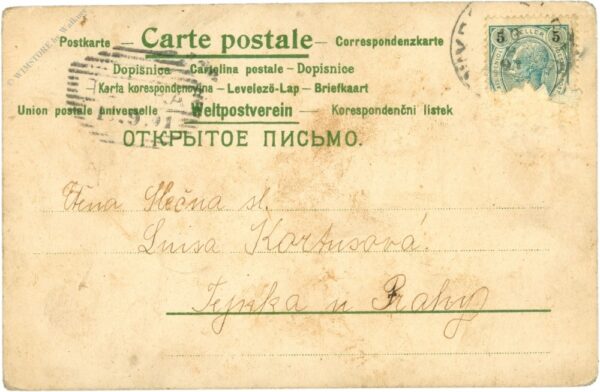 © WIMSTORE by Walkner
Postkarte — Carte postale — Correspondenzkarte
Dopisnice — Cartolina postale – Dopisnice
Karta korespondencyjna – Levelező-Lap – Briefkaart
Union postale universelle — Weltpostverein — Korespondenční listek
ОТКРЫТОЕ ПИСЬМО.
5 HELLER 5
Slečna sl.
Luisa Kortusová
u Prahy